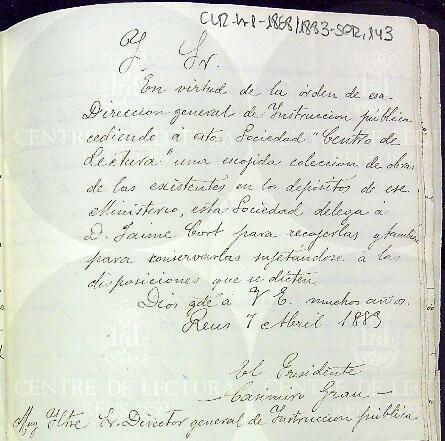 CLR-h1-1868/1883-SOR,143
Y. Sr.
En virtud de la órden de esa
Direccion general de Instruccion pública
cediendo á esta Sociedad "Centro de
Lectura" una escojida coleccion de obras
de las existentes en los depósitos de ese
Ministerio, esta Sociedad delega á
D. Jaime Cort para recojerlas y tambien
para conservarlas sujetándose á las
disposiciones que se dicten.
Dios gde á V. E. muchos años.
Reus 7 Abril 1883
El Presidente
Casimiro Grau
Muy Iltre Sr. Director general de Instruccion pública
CENTRE DE LECTURA
CENTRE DE LECTURA